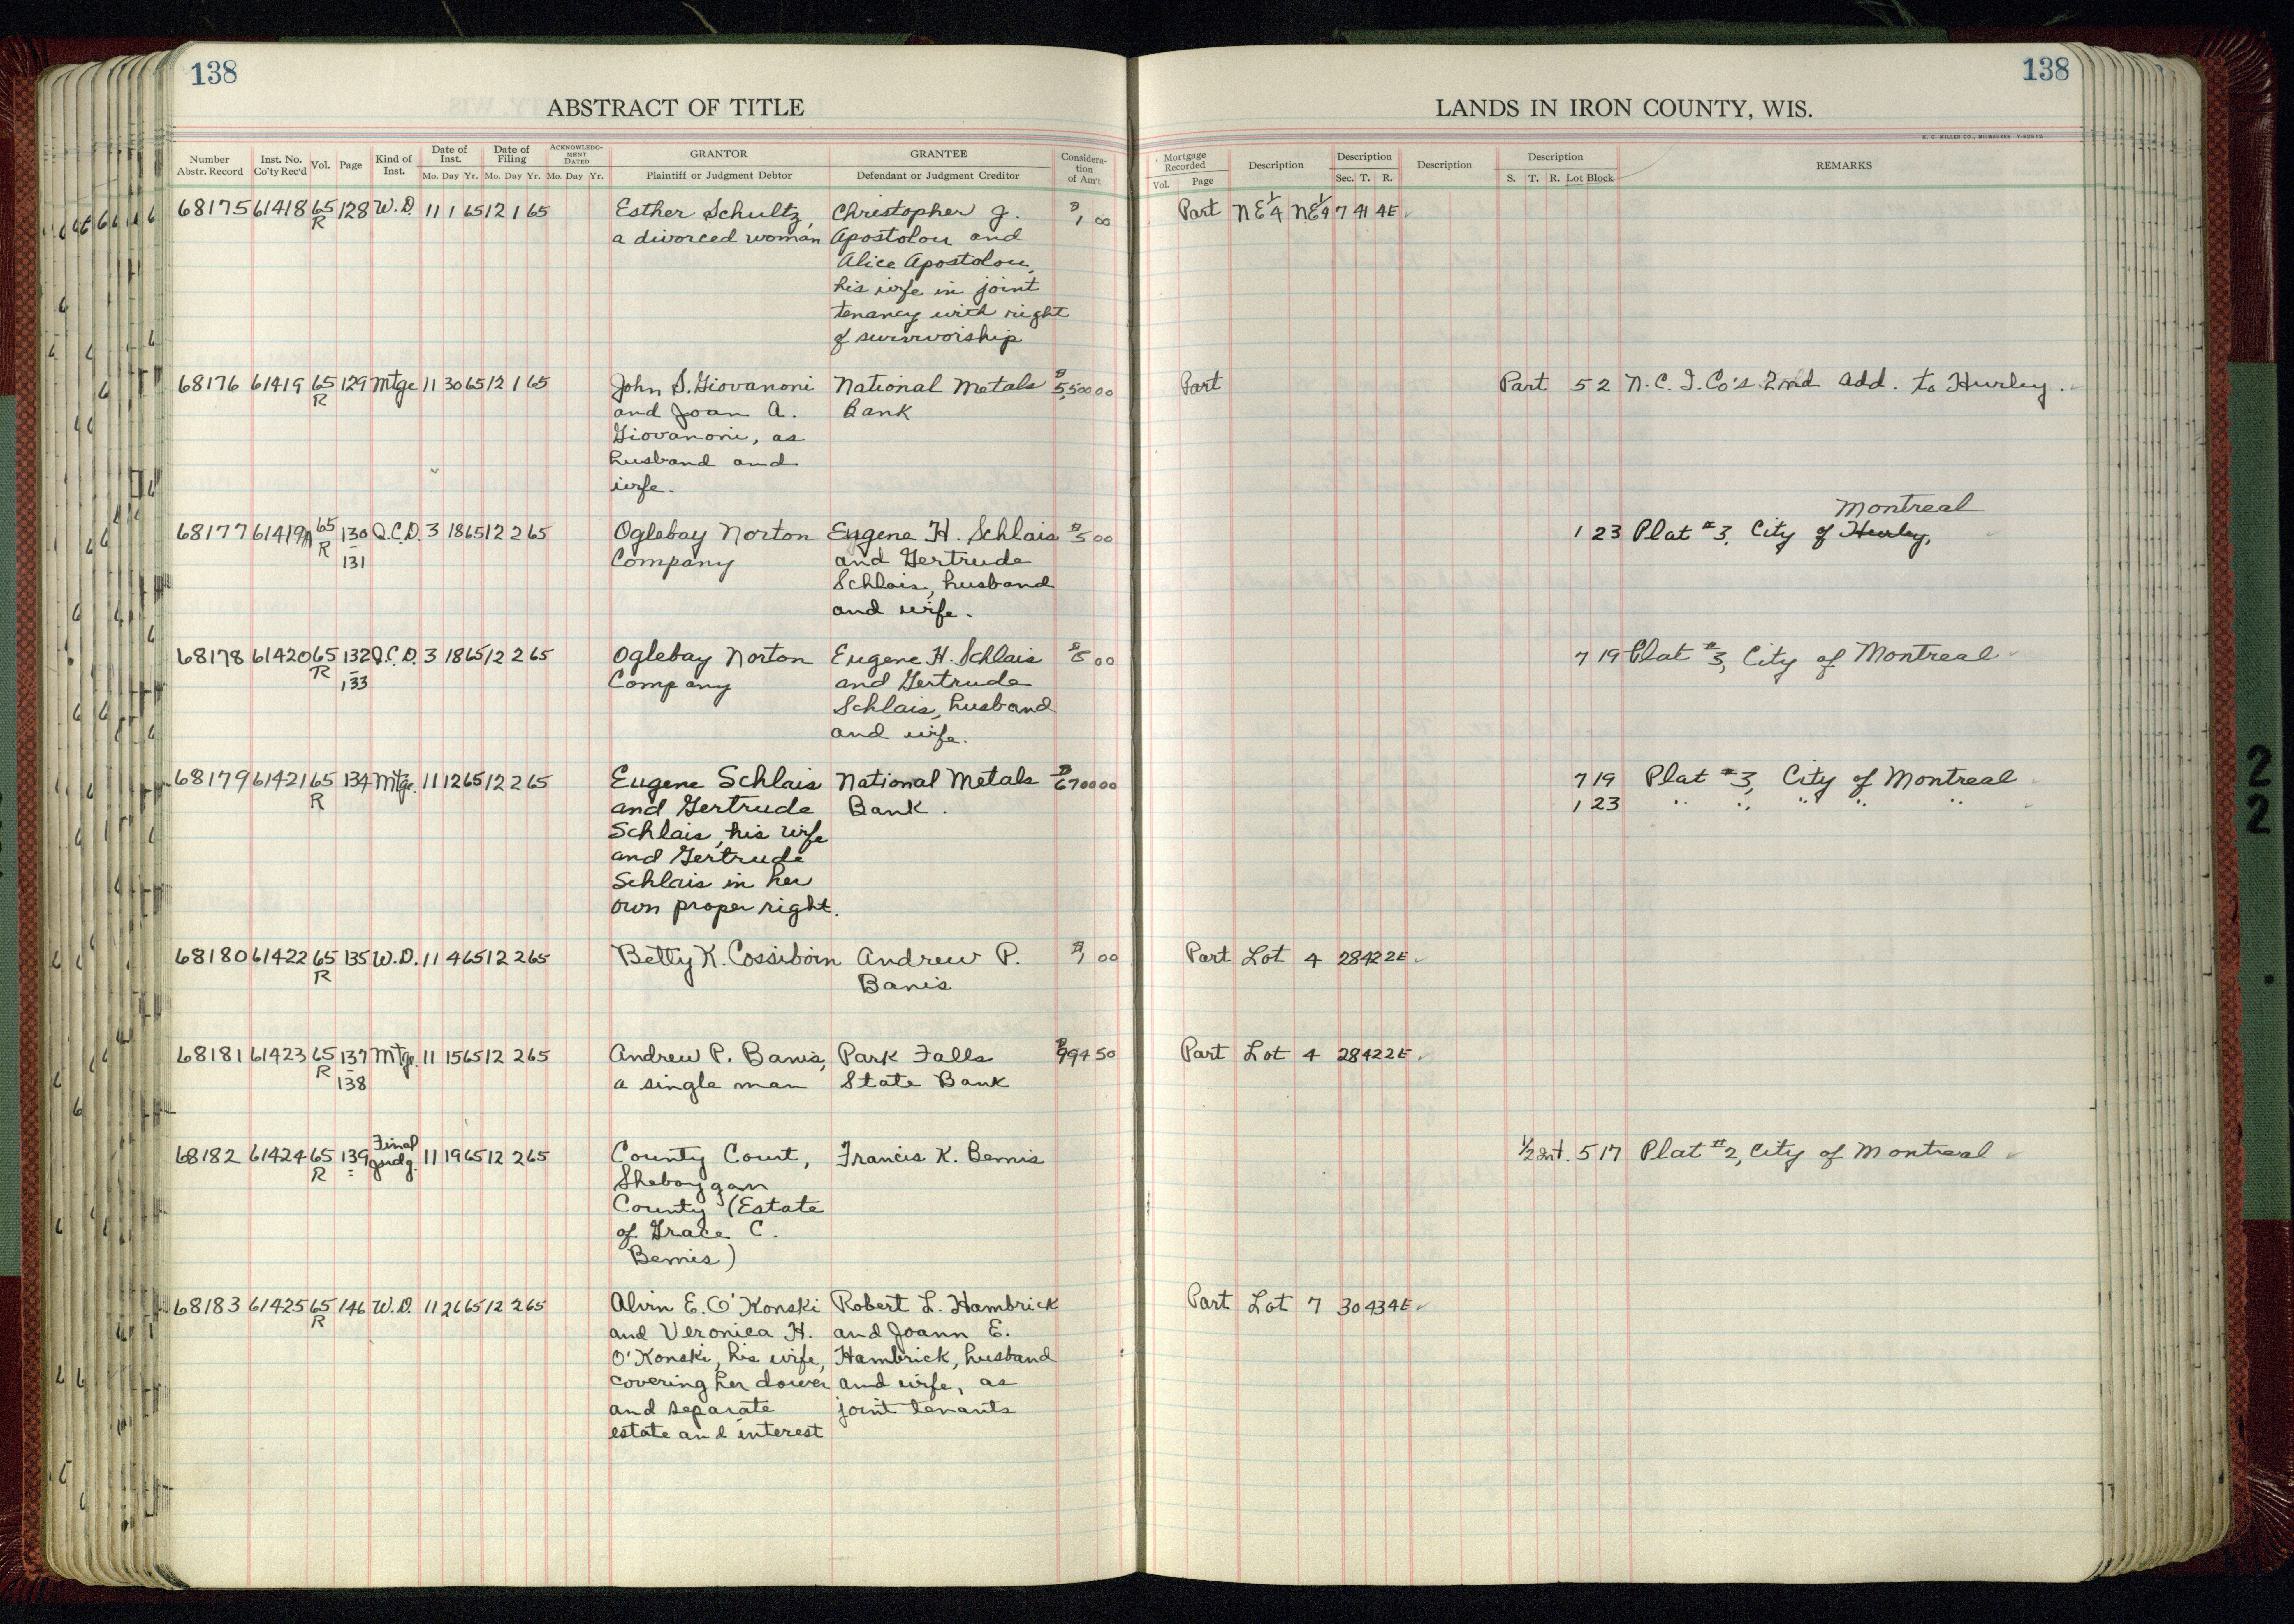 138
138
ABSTRACT OF TITLE
LANDS IN IRON COUNTY, WIS.
H. C. MILLER CO., MILWAUKEE
Number Abstr. Record Inst. No. Co'ty Rec'd Vol. Page Kind of Inst. Date of Inst. Mo. Day Yr. Date of Filing Mo. Day Yr. ACKNOWLEDGMENT DATED Mo. Day Yr. GRANTOR Plaintiff or Judgment Debtor GRANTEE Defendant or Judgment Creditor Consideration of Am't
Mortgage Recorded Vol. Page Description Description Sec. T. R. Description Description S. T. R. Lot Block REMARKS
68175 61418 65 128 W.D. 11 1 65 12 1 65 Esther Schultz, Christopher J. $1 00 Part NE¼ NE¼ 7 41 4E
R a divorced woman Apostolou and
Alice Apostolou,
his wife in joint
tenancy with right
of survivorship
68176 61419 65 129 Mtge 11 30 65 12 1 65 John S. Giovanoni National Metals $5,500 00 Part Part 5 2 N.C.I. Co's 2nd Add. to Hurley.
R and Joan A. Bank
Giovanoni, as
husband and
wife.
Montreal
68177 61419A 65 130 Q.C.D. 3 18 65 12 2 65 Oglebay Norton Eugene H. Schlais $5 00 1 23 Plat #3, City of Hurley,
R 131 Company and Gertrude
Schlais, husband
and wife.
68178 61420 65 132 Q.C.D. 3 18 65 12 2 65 Oglebay Norton Eugene H. Schlais $5 00 7 19 Plat #3, City of Montreal
R 133 Company and Gertrude
Schlais, husband
and wife.
68179 61421 65 134 Mtge. 11 12 65 12 2 65 Eugene Schlais National Metals $6700 00 7 19 Plat #3, City of Montreal
R and Gertrude Bank. 1 23 " " " " "
Schlais, his wife
and Gertrude
Schlais in her
own proper right.
68180 61422 65 135 W.D. 11 4 65 12 2 65 Betty K. Cossiboin Andrew P. $1 00 Part Lot 4 28 42 2E
R Banis
68181 61423 65 137 Mtge. 11 15 65 12 2 65 Andrew P. Banis, Park Falls $994 50 Part Lot 4 28 42 2E
R 138 a single man State Bank
68182 61424 65 139 Final Judg. 11 19 65 12 2 65 County Court, Francis K. Bemis ½ Int. 5 17 Plat #2, City of Montreal
R Sheboygan
County (Estate
of Grace C.
Bemis)
68183 61425 65 146 W.D. 11 26 65 12 2 65 Alvin E. O'Konski Robert L. Hambrick Part Lot 7 30 43 4E
R and Veronica H. and Joann E.
O'Konski, his wife, Hambrick, husband
covering her dower and wife, as
and separate joint tenants
estate and interest
2
2